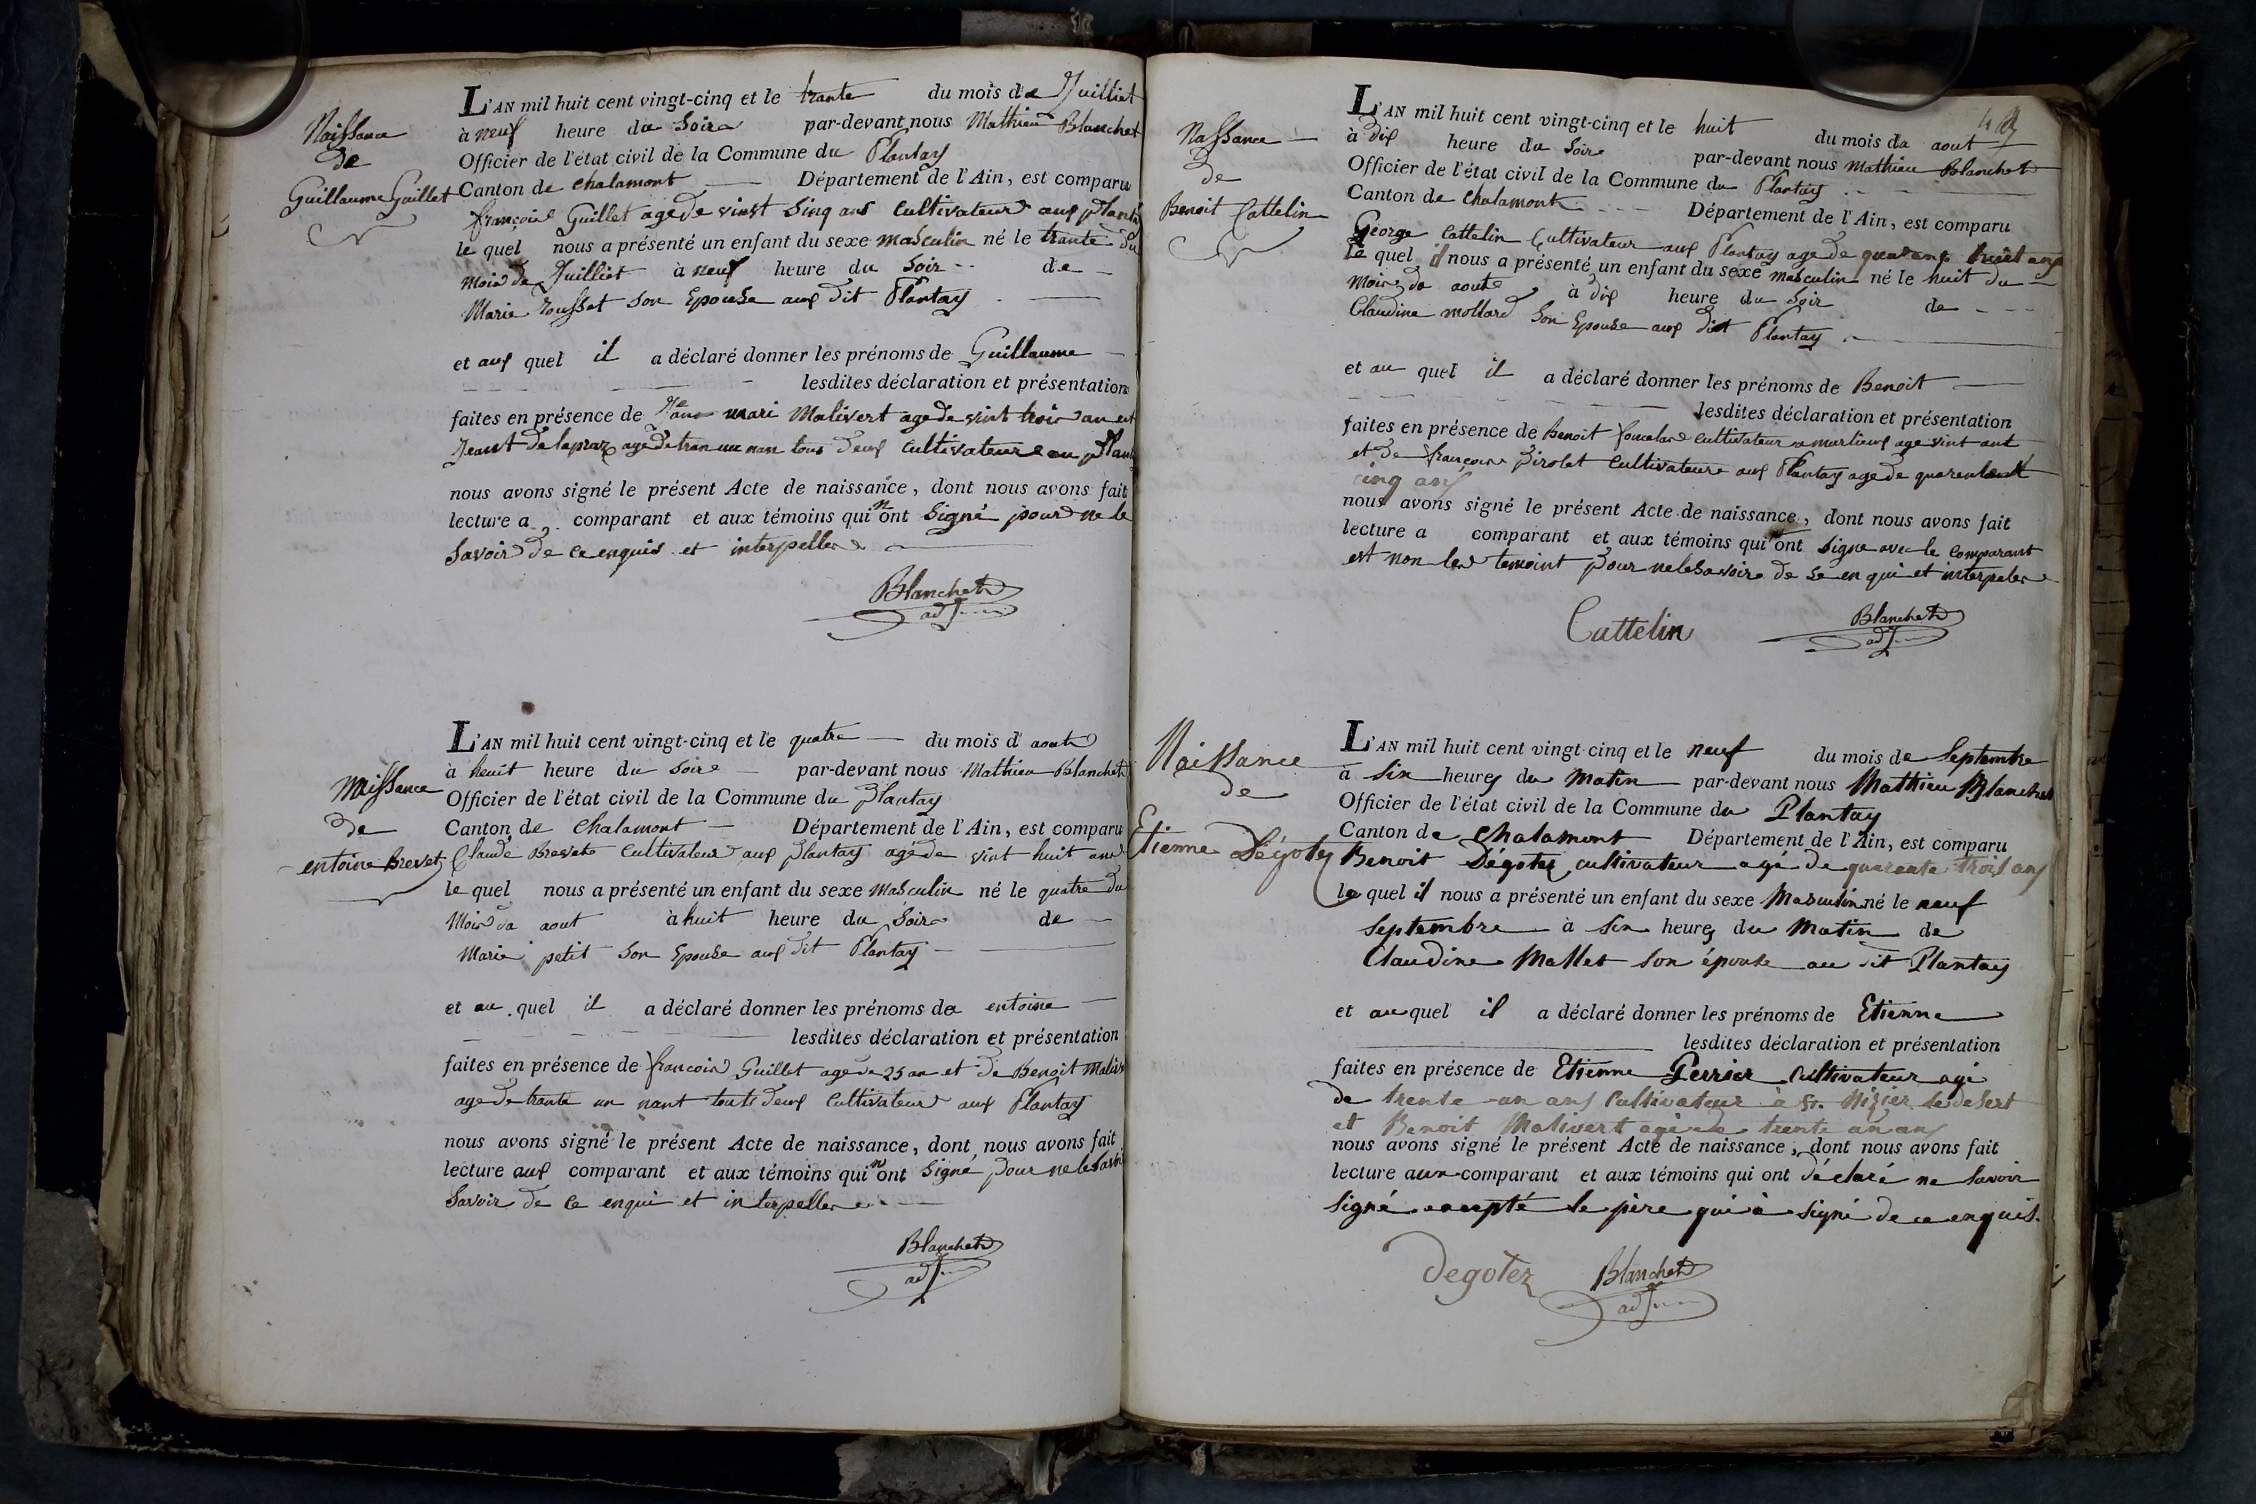 Naissance
de
Guillaume Guillet
L'AN mil huit cent vingt-cinq et le trante du mois de Juilliet
à neuf heure du Soire par-devant nous Mathieu Blanchet
Officier de l'état civil de la Commune du Plantay
Canton de chalamont Département de l'Ain, est comparu
françois Guillet age de vinst Sinq ans Cultivateur aux planta
le quel nous a présenté un enfant du sexe masculin né le trante du
mois de Juilliet à neuf heure du Soir de
Marie rousset son Epouse aux dit Plantay
et aux quel il a déclaré donner les prénoms de Guillaume
lesdites déclaration et présentation
faites en présence de mari Malivert age de vint trois an est
de lapraz age de tous deux Cultivateur au Plant
nous avons signé le présent Acte de naissance, dont nous avons fait
lecture a comparant et aux témoins qui n'ont Signé pour ne le
Savoir de ce enquis et interpeller
Blanchet
adj
Naissance
de
entoine Brevet
L'AN mil huit cent vingt-cinq et le quatre du mois d aout
à heuit heure du soire par-devant nous Mathieu Blanchet
Officier de l'état civil de la Commune du plantay
Canton de Chalamont Département de l'Ain, est comparu
Claude Brevate Cultivateur aux plantay age de vint huit ans
le quel nous a présenté un enfant du sexe masculin né le quatre du
Mois da aout à huit heure du Soire de
Marie petit son Epouse aux dit Plantay
et au quel il a déclaré donner les prénoms de entoine
lesdites déclaration et présentation
faites en présence de francois Guillet age de 25 an et de Benoit Maliv
age de trante un nant touts deux Cultivateur aux Plantay
nous avons signé le présent Acte de naissance, dont nous avons fait
lecture aux comparant et aux témoins qui n'ont Signé pour ne le Savoi
Savoir de ce enqui et interpeller
Blanchet
adj
Naissance
de
Benoit Cattelin
L'AN mil huit cent vingt-cinq et le huit du mois da aout
à dix heure du Soire par-devant nous Mathieu Blanchet
Officier de l'état civil de la Commune du Plantay
Canton de chalamont Département de l'Ain, est comparu
George Cattelin Cultivateur aux Plantay age de huit ans
le quel il nous a présenté un enfant du sexe masculin né le huit du
mois de aoute à dix heure du Soir de
Claudine mollard Son Epouse aux dit Plantay
et au quel il a déclaré donner les prénoms de Benoit
lesdites déclaration et présentation
faites en présence de Benoit cultivateur a marlieux age vint
et de françois Pirolet Cultivateur aux Plantay age de
cinq ans
nous avons signé le présent Acte de naissance, dont nous avons fait
lecture a comparant et aux témoins qui ont signe avec le comparant
est non les temoint pour ne le savoire de se en qui et interpeler
Cattelin Blanchet
adj
Naissance
de
Etienne Dégotez
L'AN mil huit cent vingt-cinq et le neuf du mois de Septembre
à six heures du Matin par-devant nous Mathieu Blanchet
Officier de l'état civil de la Commune du Plantay
Canton de Chalamont Département de l'Ain, est comparu
Benoit Dégotez cultivateur agé de quarante trois ans
le quel il nous a présenté un enfant du sexe Masculin né le neuf
Septembre à six heures du Matin de
Claudine Mallet son épouse au dit Plantay
et au quel il a déclaré donner les prénoms de Etienne
lesdites déclaration et présentation
faites en présence de Etienne Perrier Cultivateur agé
de trente un ans Cultivateur à St. Nizier le desert
et Benoit Malivert agé de trente un ans
nous avons signé le présent Acte de naissance, dont nous avons fait
lecture aux comparant et aux témoins qui ont déclaré ne savoir
signé excepté le père qui à signé de ce enquis.
Degotez Blanchet
adj